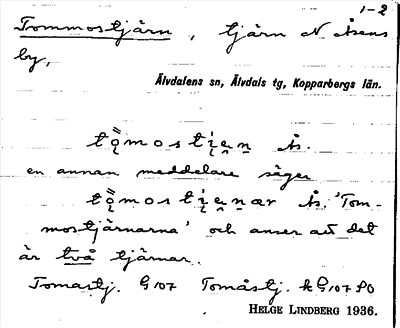 1-2
Tommostjärn, tjärn N Åsens
by,
Älvdalens sn, Älvdals tg, Kopparbergs län.
Ås.
en annan meddelare säger
Ås. 'Tom-
mostjärnarna' och anser att det
är två tjärnar.
Tomastj. G 107 Tomåstj. k G 107 SO
HELGE LINDBERG 1936.